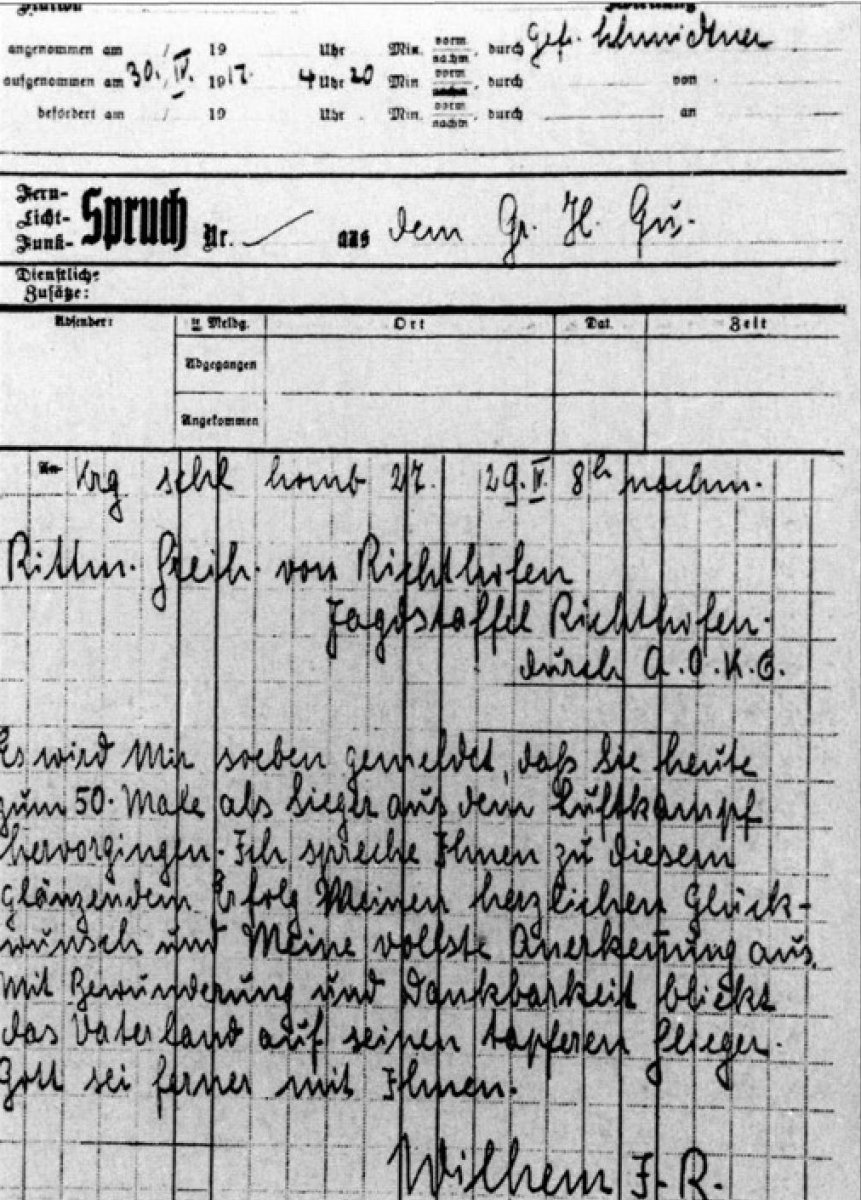 Station
angenommen am / 19 Uhr Min. vorm nachm. durch Gefr.
aufgenommen am 30. IV. 1917. 4 Uhr 20 Min vorm nachm. durch von
befördert am / 19 Uhr Min. vorm nachm. durch an
Fern-
Licht-
Funk-
Spruch Nr. / aus dem Gr. H. Qu.
Dienstliche
Zusätze:
Absender: Meldg. Ort Dat. Zeit
Abgegangen
Angekommen
An Krg schl homb 27. 29. IV. 8h nachm.
Rittm. Freih. von Richthofen
Jagdstaffel Richthofen.
durch A.O.K. 6.
Es wird Mir soeben gemeldet, daß Sie heute
zum 50. Male als Sieger aus dem Luftkampf
hervorgingen. Ich spreche Ihnen zu diesem
glänzendem Erfolg Meinen herzlichen Glück-
wunsch und Meine vollste Anerkennung aus.
Mit Bewunderung und Dankbarkeit blickt
das Vaterland auf seinen tapferen Flieger.
Gott sei ferner mit Ihnen.
Wilhem I. R.